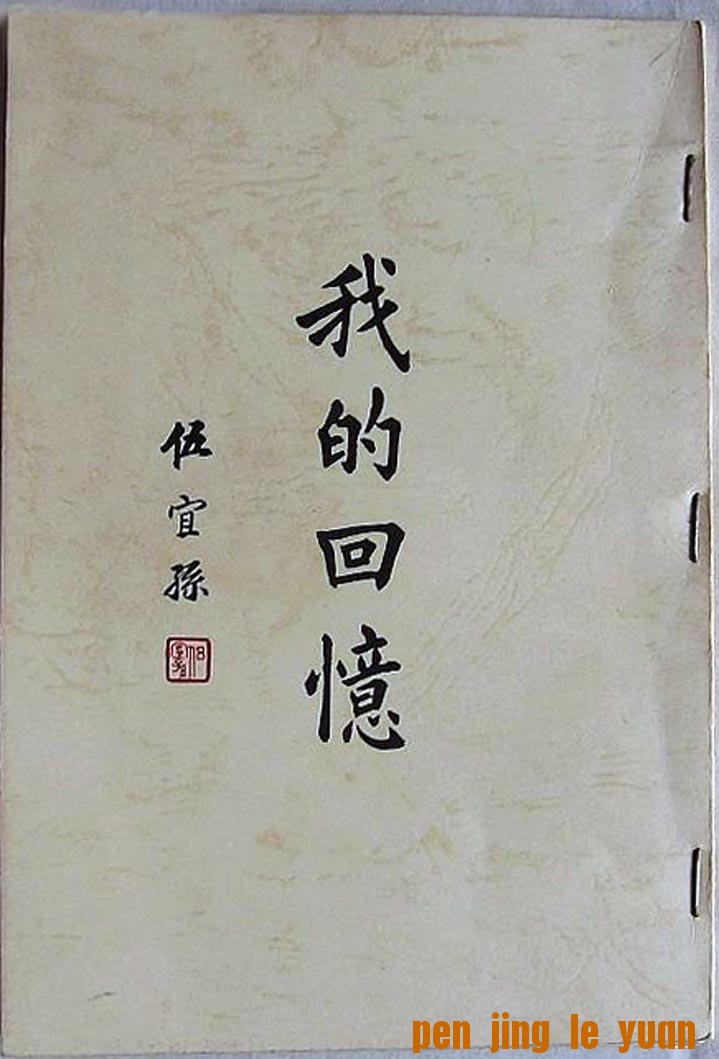 我的回憶
伍宜孫
pen jing le yuan